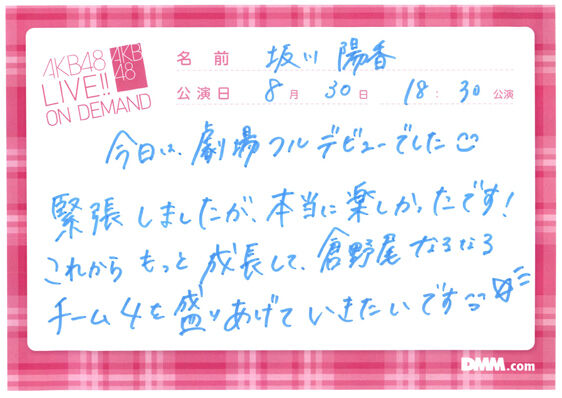 AKB48
LIVE!!
ON DEMAND
AKB
48
名前 坂川 陽香
公演日 8月30日 18:30公演
今日は、劇場フルデビューでした
緊張しましたが、本当に楽しかったです!
これからもっと成長して、倉野尾なるなる
チーム4を盛りあげていきたいです
DMM.com